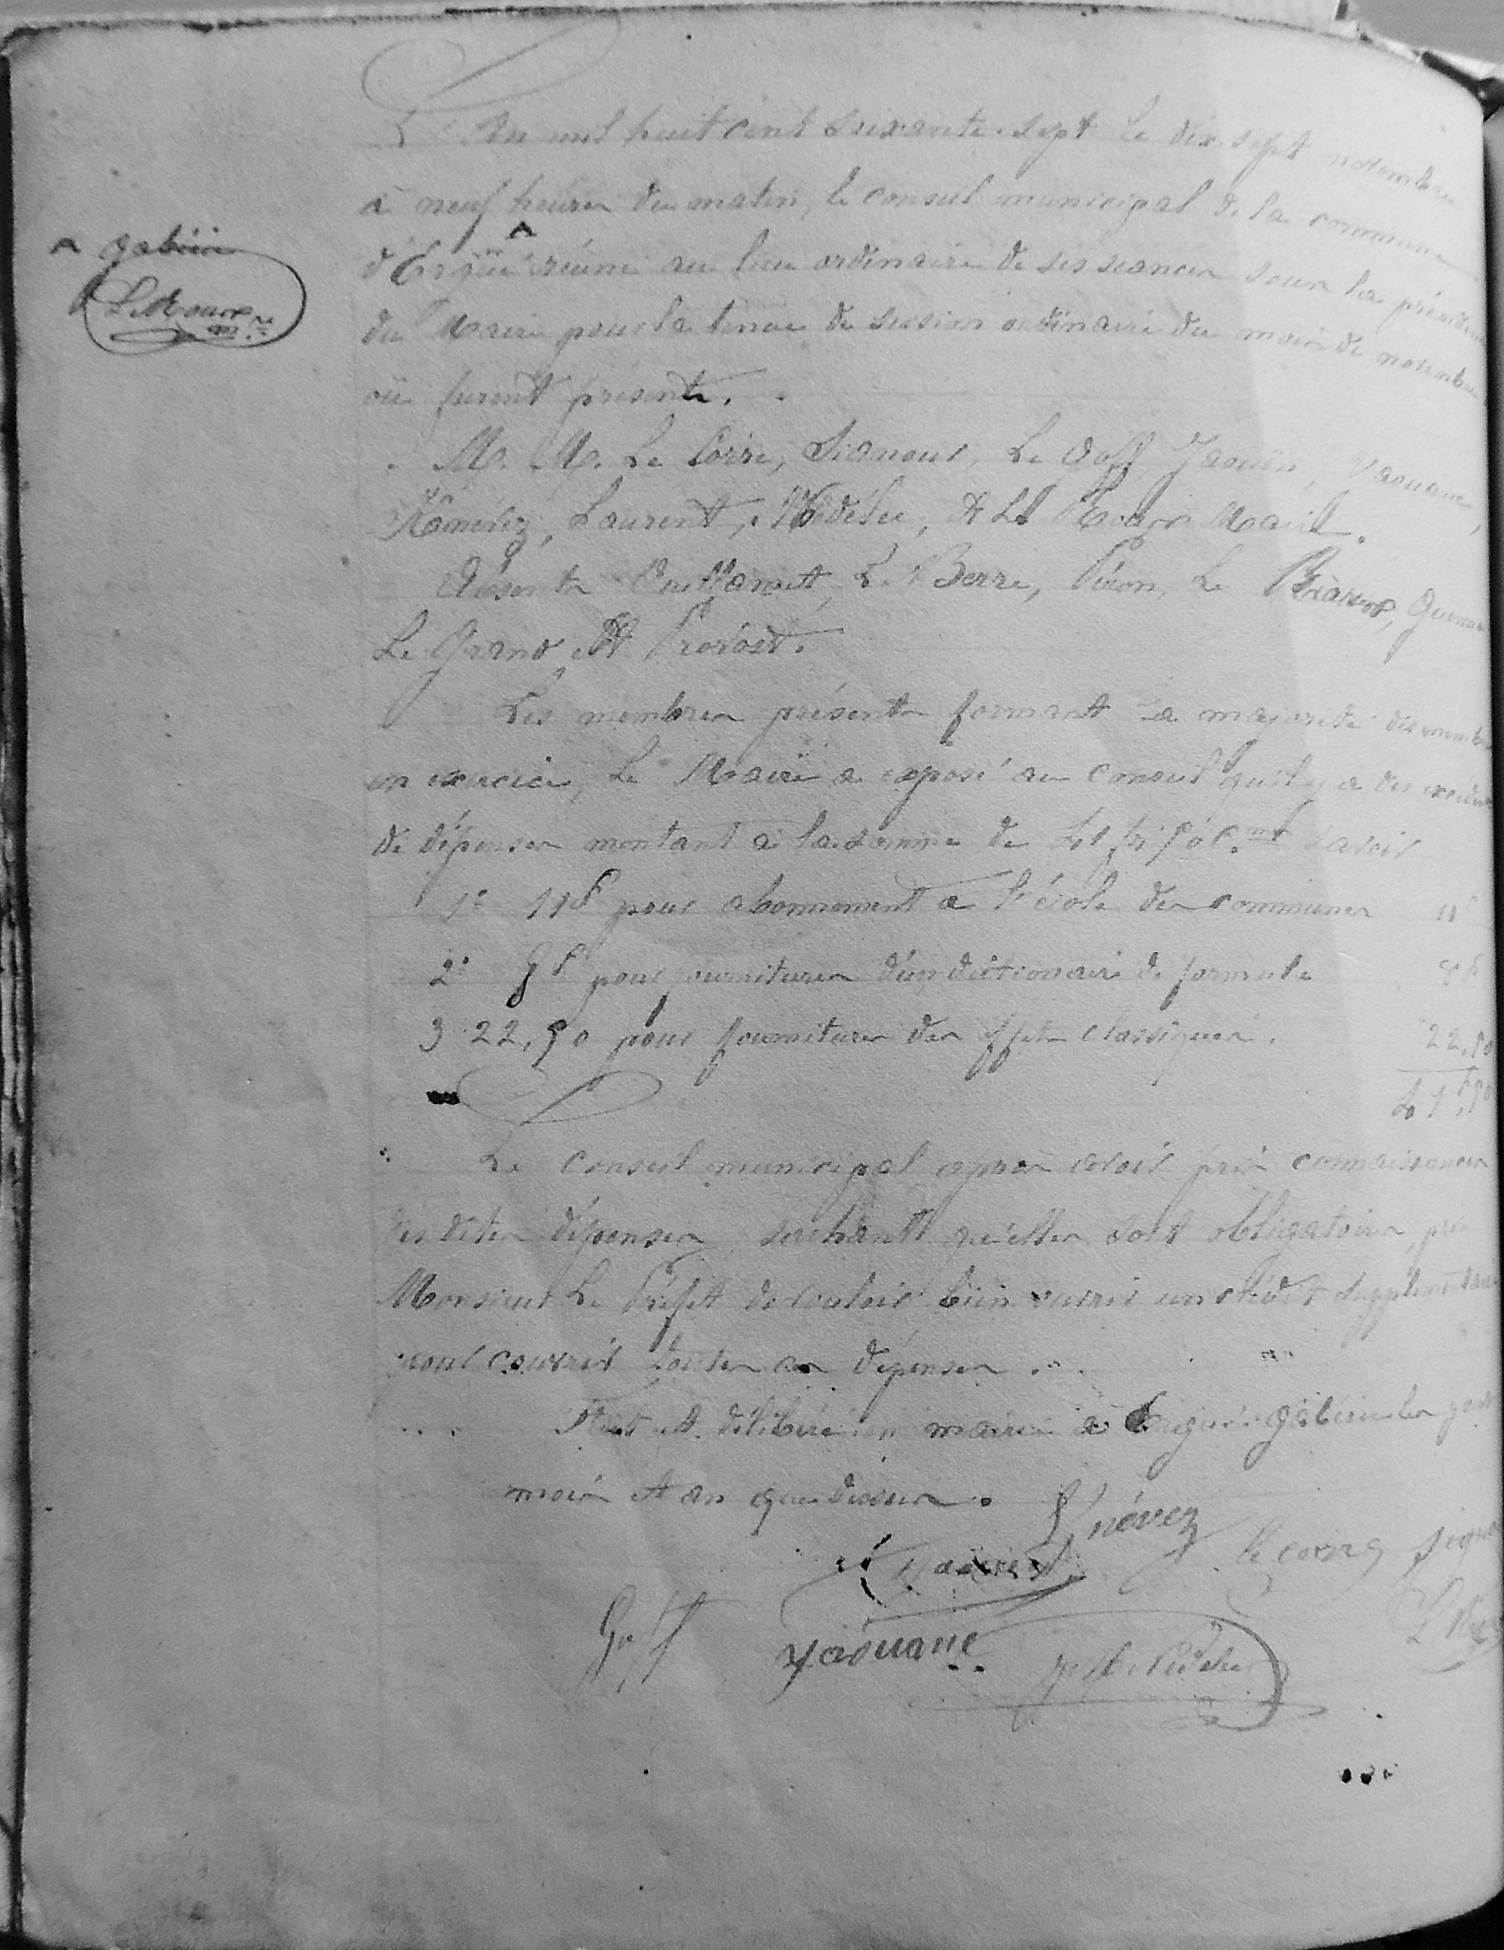 L'an mil huit cent soixante-sept le dix-sept novembre
à neuf heures du matin, le conseil municipal de la commune
^ gabéric
d'Ergué ^ réuni au lieu ordinaire de ses seances sous la présidence
Le Roux
du Maire pour la tenue de session ordinaire du mois de novembre
où furent présents.
M. M. Le Corre, Le Goff, Jaouen, Yaouanc,
Laurent, Nédélec, et Le Roux Maire.
Absents Le Berre, Le Guenno
Le Grand, et Prévost.
Les membres présents formant la majorité des membres
en exercice, Le Maire a exposé au conseil qu'il y a des
de dépenses montant à la somme de savoir
1° 11f pour abonnement a l'école des communes 11f
2° 8f pour fournitures d'un dictionaire de formule 8f
3 22,50 pour fournitures des effets classiques. 22,50
41f,50
Le Conseil municipal après avoir pris connaissances
des dites dépenses, sachant qu'elles sont obligatoires, prie
Monsieur Le Préfet de vouloir bien ouvrir un crédit supplémentaire
pour couvrir toutes ces dépenses
Fait et délibéré en mairie à Ergué-gabéric les jour
mois et an que dessus.
Le corre
Goff Yaouanc Nédélec